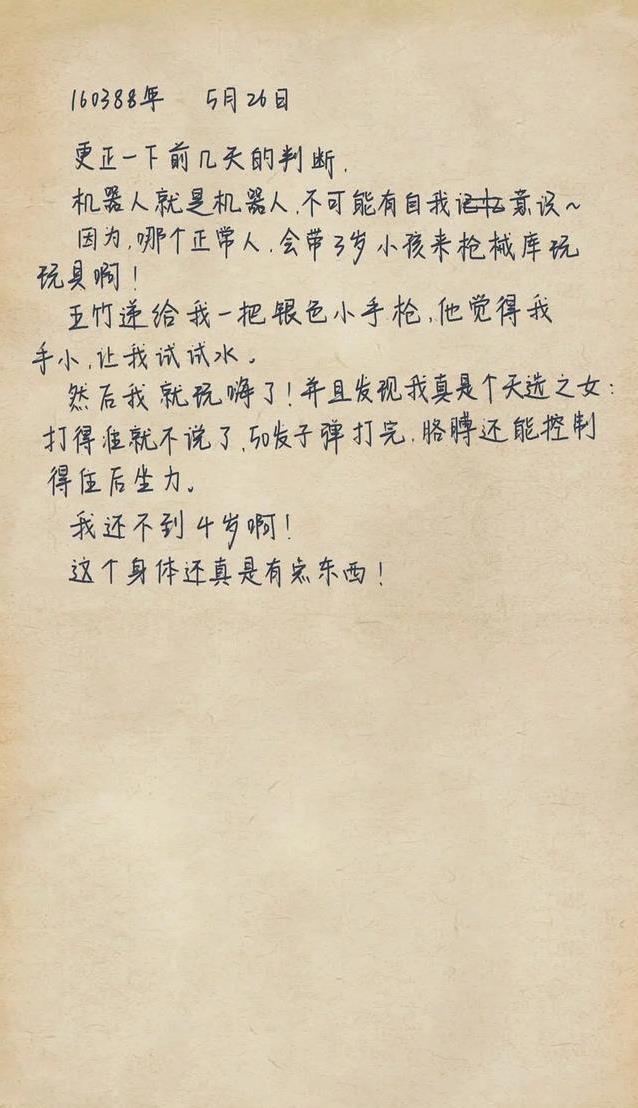 160388年 5月26日
更正一下前几天的判断.
机器人就是机器人.不可能有自我记忆意识~
因为,哪个正常人.会带3岁小孩来枪械库玩
玩具啊!
五竹递给我一把银色小手枪.他觉得我
手小,让我试试水。
然后我就玩嗨了!并且发现我真是个天选之女:
打得准就不说了,50发子弹打完.胳膊还能控制
得住后坐力。
我还不到4岁啊!
这个身体还真是有点东西!